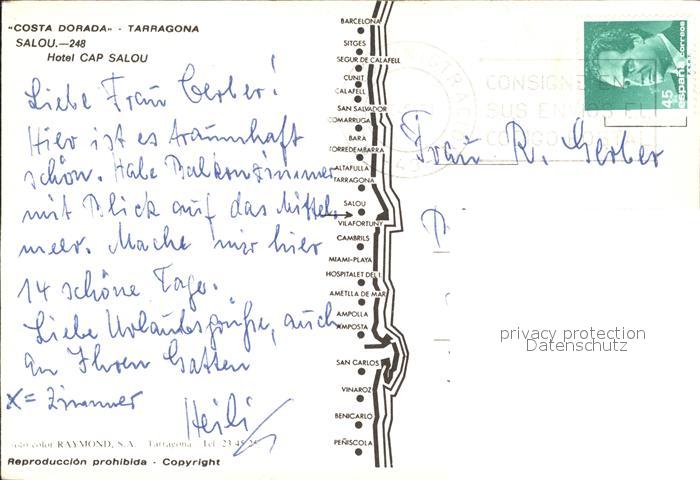 "COSTA DORADA" - TARRAGONA
SALOU.—248
Hotel CAP SALOU
Liebe Frau Gerber!
Hier ist es traumhaft
schön. Habe Balkonzimmer
mit Blick auf das Mittel-
meer. Mache mir hier
14 schöne Tage.
Liebe Urlaubsgrüße, auch
an Ihren Gatten
x = Zimmer
Heili
color RAYMOND, S.A. Tarragona Tel. 23
Reproducción prohibida - Copyright
BARCELONA
SITGES
SEGUR DE CALAFELL
CUNIT
CALAFELL
SAN SALVADOR
COMARRUGA
BARA
TORREDEMBARRA
ALTAFULLA
TARRAGONA
SALOU
VILAFORTUNY
CAMBRILS
MIAMI-PLAYA
HOSPITALET DEL I.
AMETLLA DE MAR
AMPOLLA
AMPOSTA
SAN CARLOS
VINAROZ
BENICARLO
PEÑISCOLA
CONSIGNE EN
SUS ENVIOS EL
CODIGO POSTAL
45
españa correos
Frau R. Gerber
privacy protection
Datenschutz